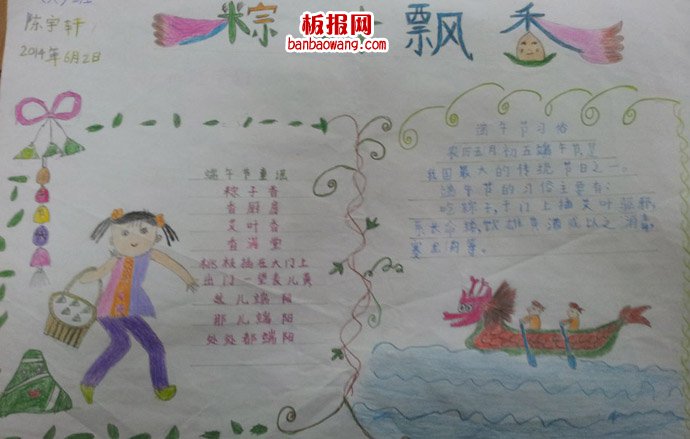 陈宇轩
2014年6月2日
粽 飘香
板报网
banbaowang.com
端午节童谣
粽子香
香厨房
艾叶香
香满堂
桃枝插在大门上
出门一望麦儿黄
这儿端阳
那儿端阳
处处都端阳
端午节习俗
农历五月初五端午节是
我国最大的传统节日之一。
端午节的习俗主要有:
吃粽子,于门上插艾叶 驱邪,
系长命缕,饮雄黄酒或以之 消毒,
赛龙舟等。